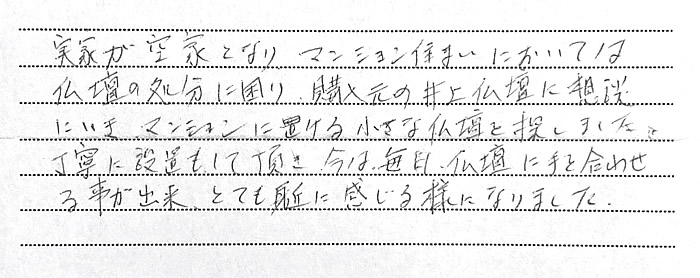 実家が空家となり マンション住まいにおいては
仏壇の処分に困り、購入元の井上仏壇に想談
にいき、マンションに置ける小さな仏壇を探しました。
丁寧に設置もして頂き、今は、毎日、仏壇に手を合わせ
る事が出来、とても身近に感じる様になりました。